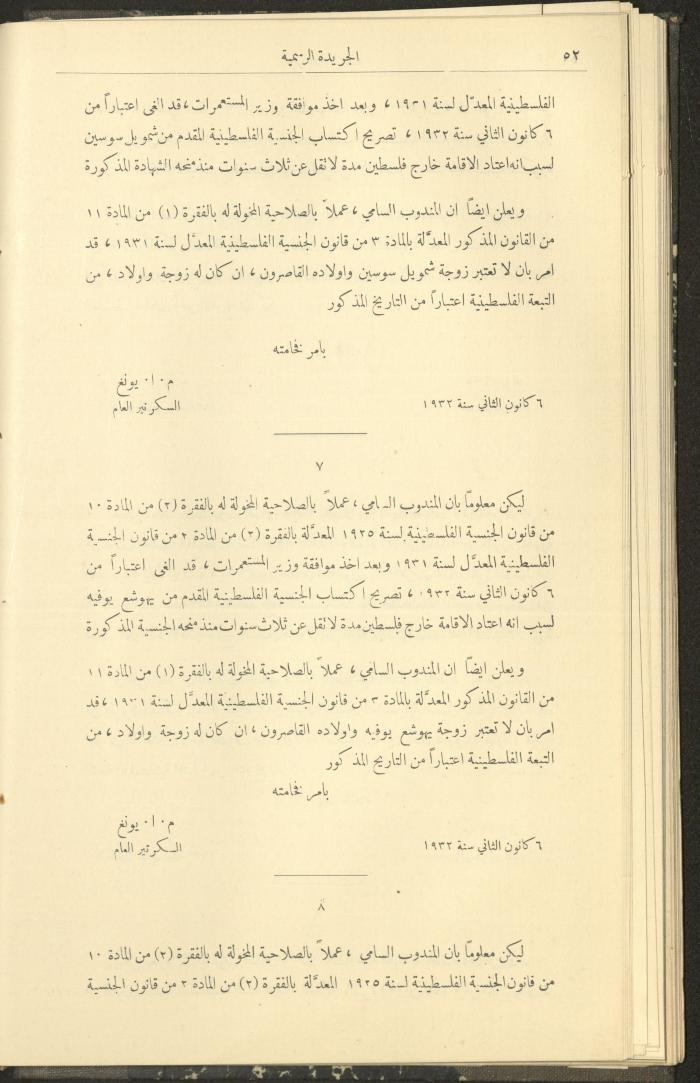 ٥٢
الجريدة الرسمية
الفلسطينية المعدّل لسنة ١٩٣١ ، وبعد اخذ موافقة وزير المستعمرات ، قد الغى اعتباراً من
٦ كانون الثاني سنة ١٩٣٢ ، تصريح اكتساب الجنسية الفلسطينية المقدم من شمويل سوسين
لسبب انه اعتاد الاقامة خارج فلسطين مدة لا تقل عن ثلاث سنوات منذ منحه الشهادة المذكورة
ويعلن ايضاً ان المندوب السامي ، عملاً بالصلاحية المخولة له بالفقرة (١) من المادة ١١
من القانون المذكور المعدَّلة بالمادة ٣ من قانون الجنسية الفلسطينية المعدَّل لسنة ١٩٣١ ، قد
امر بان لا تعتبر زوجة شمويل سوسين واولاده القاصرون ، ان كان له زوجة واولاد ، من
التبعة الفلسطينية اعتباراً من التاريخ المذكور
بامر فخامته
م ٠ ا ٠ يونغ
٦ كانون الثاني سنة ١٩٣٢
السكرتير العام
٧
ليكن معلوماً بان المندوب السامي ، عملاً بالصلاحية المخولة له بالفقرة (٢) من المادة ١٠
من قانون الجنسية الفلسطينية لسنة ١٩٢٥ المعدَّلة بالفقرة (٢) من المادة ٢ من قانون الجنسية
الفلسطينية المعدَّل لسنة ١٩٣١ وبعد اخذ موافقة وزير المستعمرات ، قد الغى اعتباراً من
٦ كانون الثاني سنة ١٩٣٢ ، تصريح اكتساب الجنسية الفلسطينية المقدم من يهوشع يوفيه
لسبب انه اعتاد الاقامة خارج فلسطين مدة لا تقل عن ثلاث سنوات منذ منحه الجنسية المذكورة
ويعلن ايضاً ان المندوب السامي ، عملاً بالصلاحية المخولة له بالفقرة (١) من المادة ١١
من القانون المذكور المعدَّلة بالمادة ٣ من قانون الجنسية الفلسطينية المعدَّل لسنة ١٩٣١ ، قد
امر بان لا تعتبر زوجة يهوشع يوفيه واولاده القاصرون ، ان كان له زوجة واولاد ، من
التبعة الفلسطينية اعتباراً من التاريخ المذكور
بامر فخامته
م ٠ ا ٠ يونغ
٦ كانون الثاني سنة ١٩٣٢
السكرتير العام
٨
ليكن معلوماً بان المندوب السامي ، عملاً بالصلاحية المخولة له بالفقرة (٢) من المادة ١٠
من قانون الجنسية الفلسطينية لسنة ١٩٢٥ المعدَّلة بالفقرة (٢) من المادة ٢ من قانون الجنسية